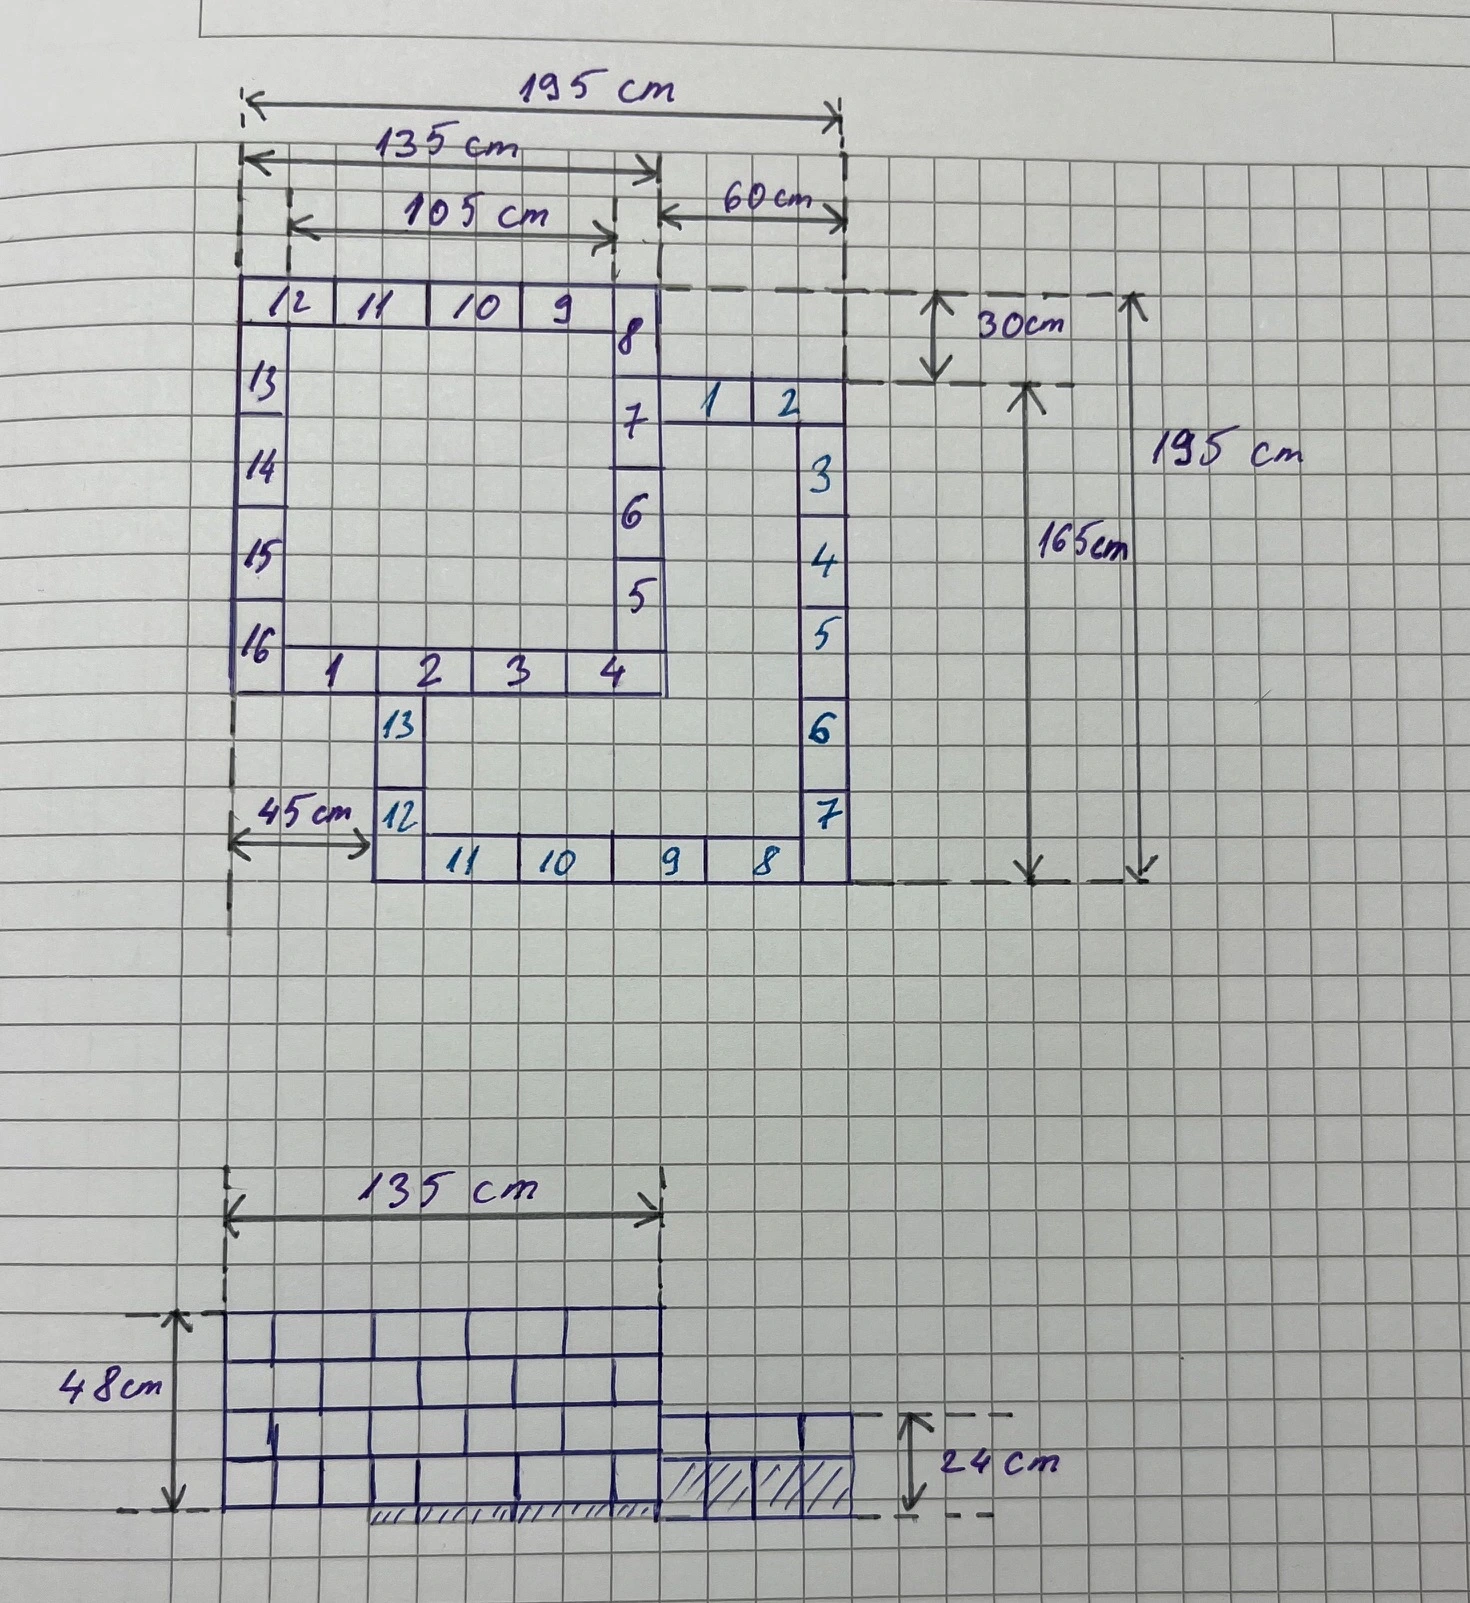 195 cm
135 cm
105 cm
60cm
12 11 10 9
8
30cm
13
7
1 2
195 cm
14
3
6
4
165cm
15
5
5
16
1 2 3 4
13
6
45cm
12
7
11 10 9 8
135 cm
48cm
24 cm